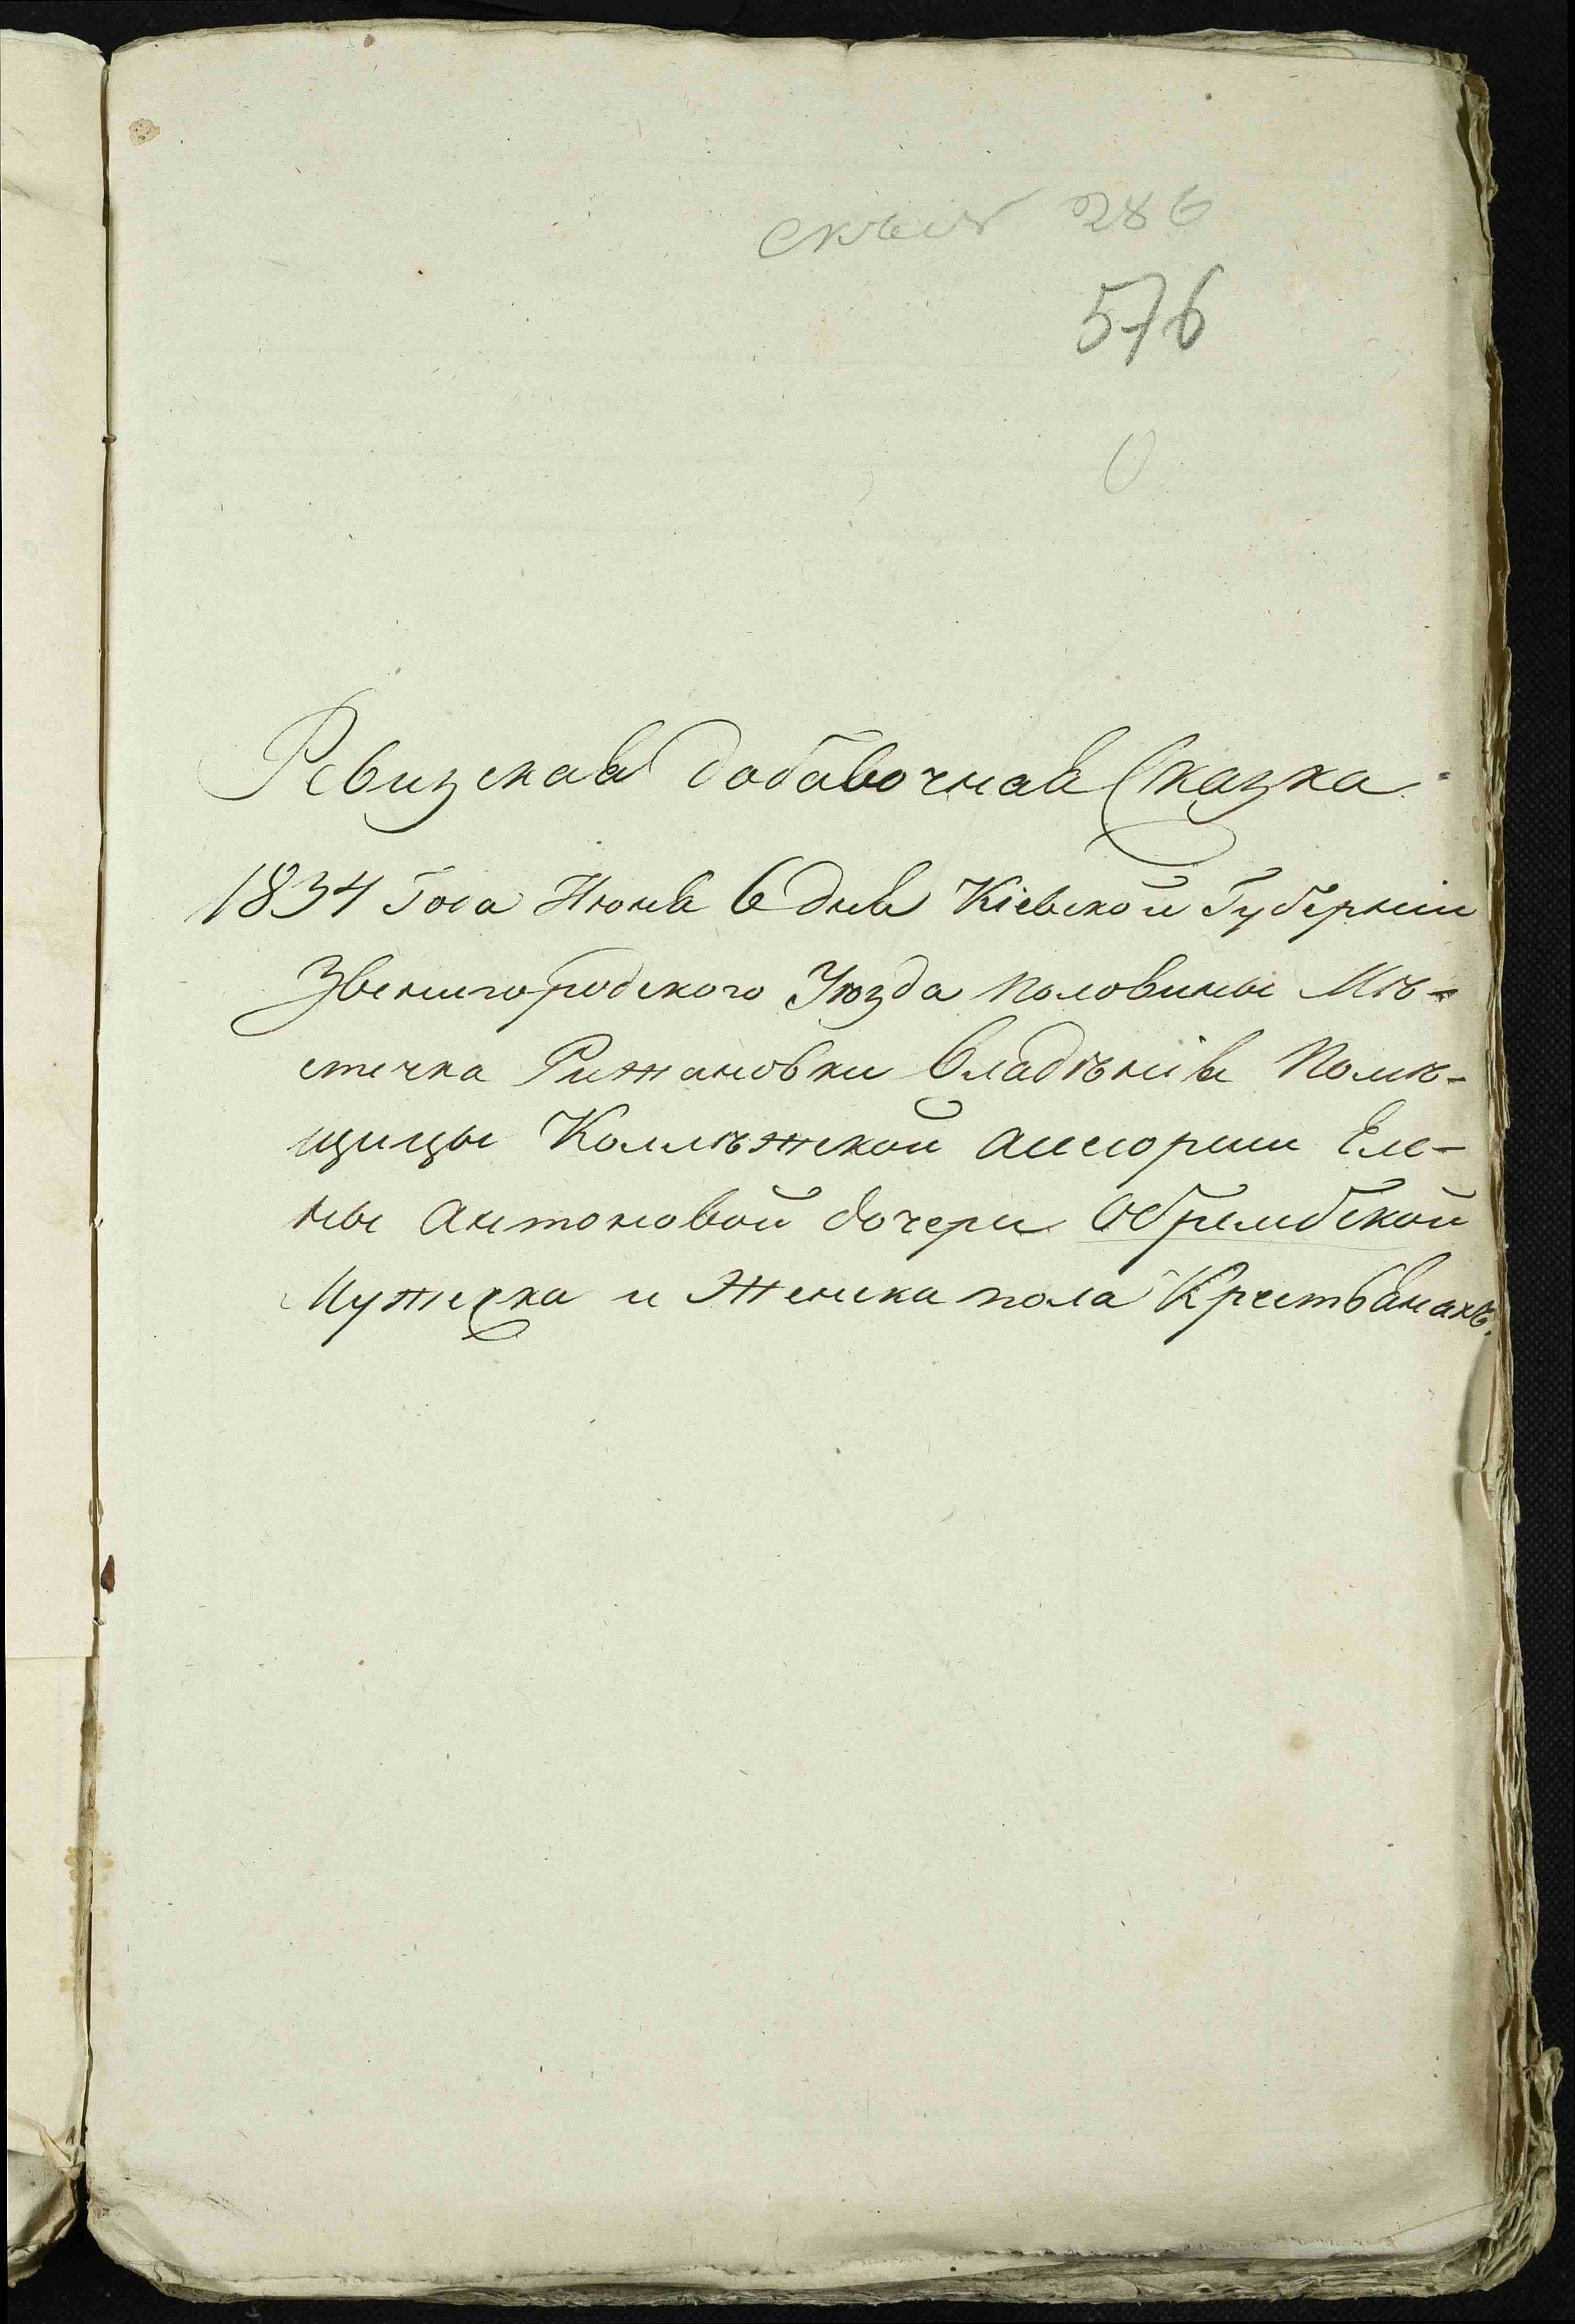 286
576
Ревизская добавочная Сказка
1834 Года Июня 6 дня Кіевской Губерніи
Звенигородского Уѣзда половины Мѣ-
стечка Рижановки Владѣнія Помѣ-
щицы Коллѣжской асессорши Еле-
ны Антоновой дочери Обрембской
Мужеска и Женска пола Крестьянахъ.